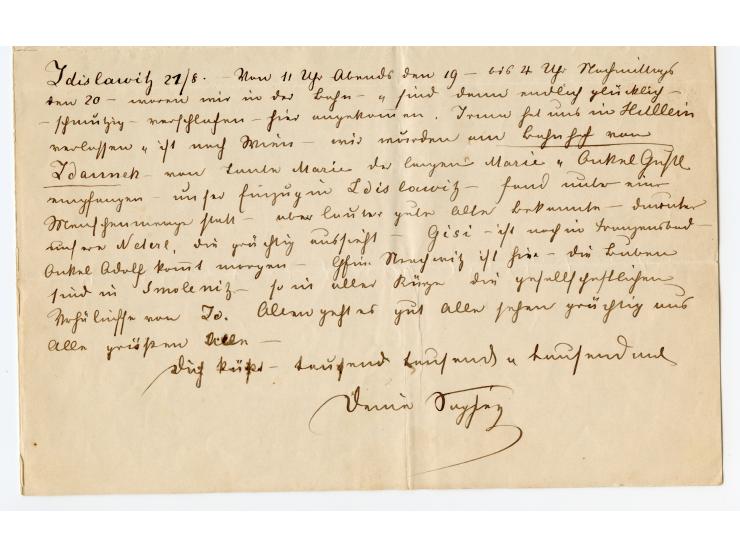 Zdislawitz 21/8. – Von 11 Uhr Abends den 19 – bis 4 Uhr Nachmittags
den 20 – waren wir in der Bahn – u sind denn endlich glücklich –
– schmutzig – verschlafen – hier angekommen. Irma hat uns in Hullein
verlassen u ist nach Wien – wir wurden am Bahnhof von
Zdaunek – von Tante Marie der langen Marie u Onkel Gustl
empfangen – unser Einzug in Zdislawitz – fand unter einer
Menschenmenge statt – aber lauter gute alte Bekannte – darunter
unsere Neterl, die prächtig aussieht – Gisi – ist noch in Franzensbad –
Onkel Adolf kommt morgen – Gfin ist hier – die Buben
sind in Smolenitz – so in aller Kürze die gesellschaftlichen
Verhältnisse von Zd. Allen geht es gut alle sehen prächtig aus
Alle grüßen Alle –
Dich küßt – tausend tausend u tausendmal
Deine Sophie